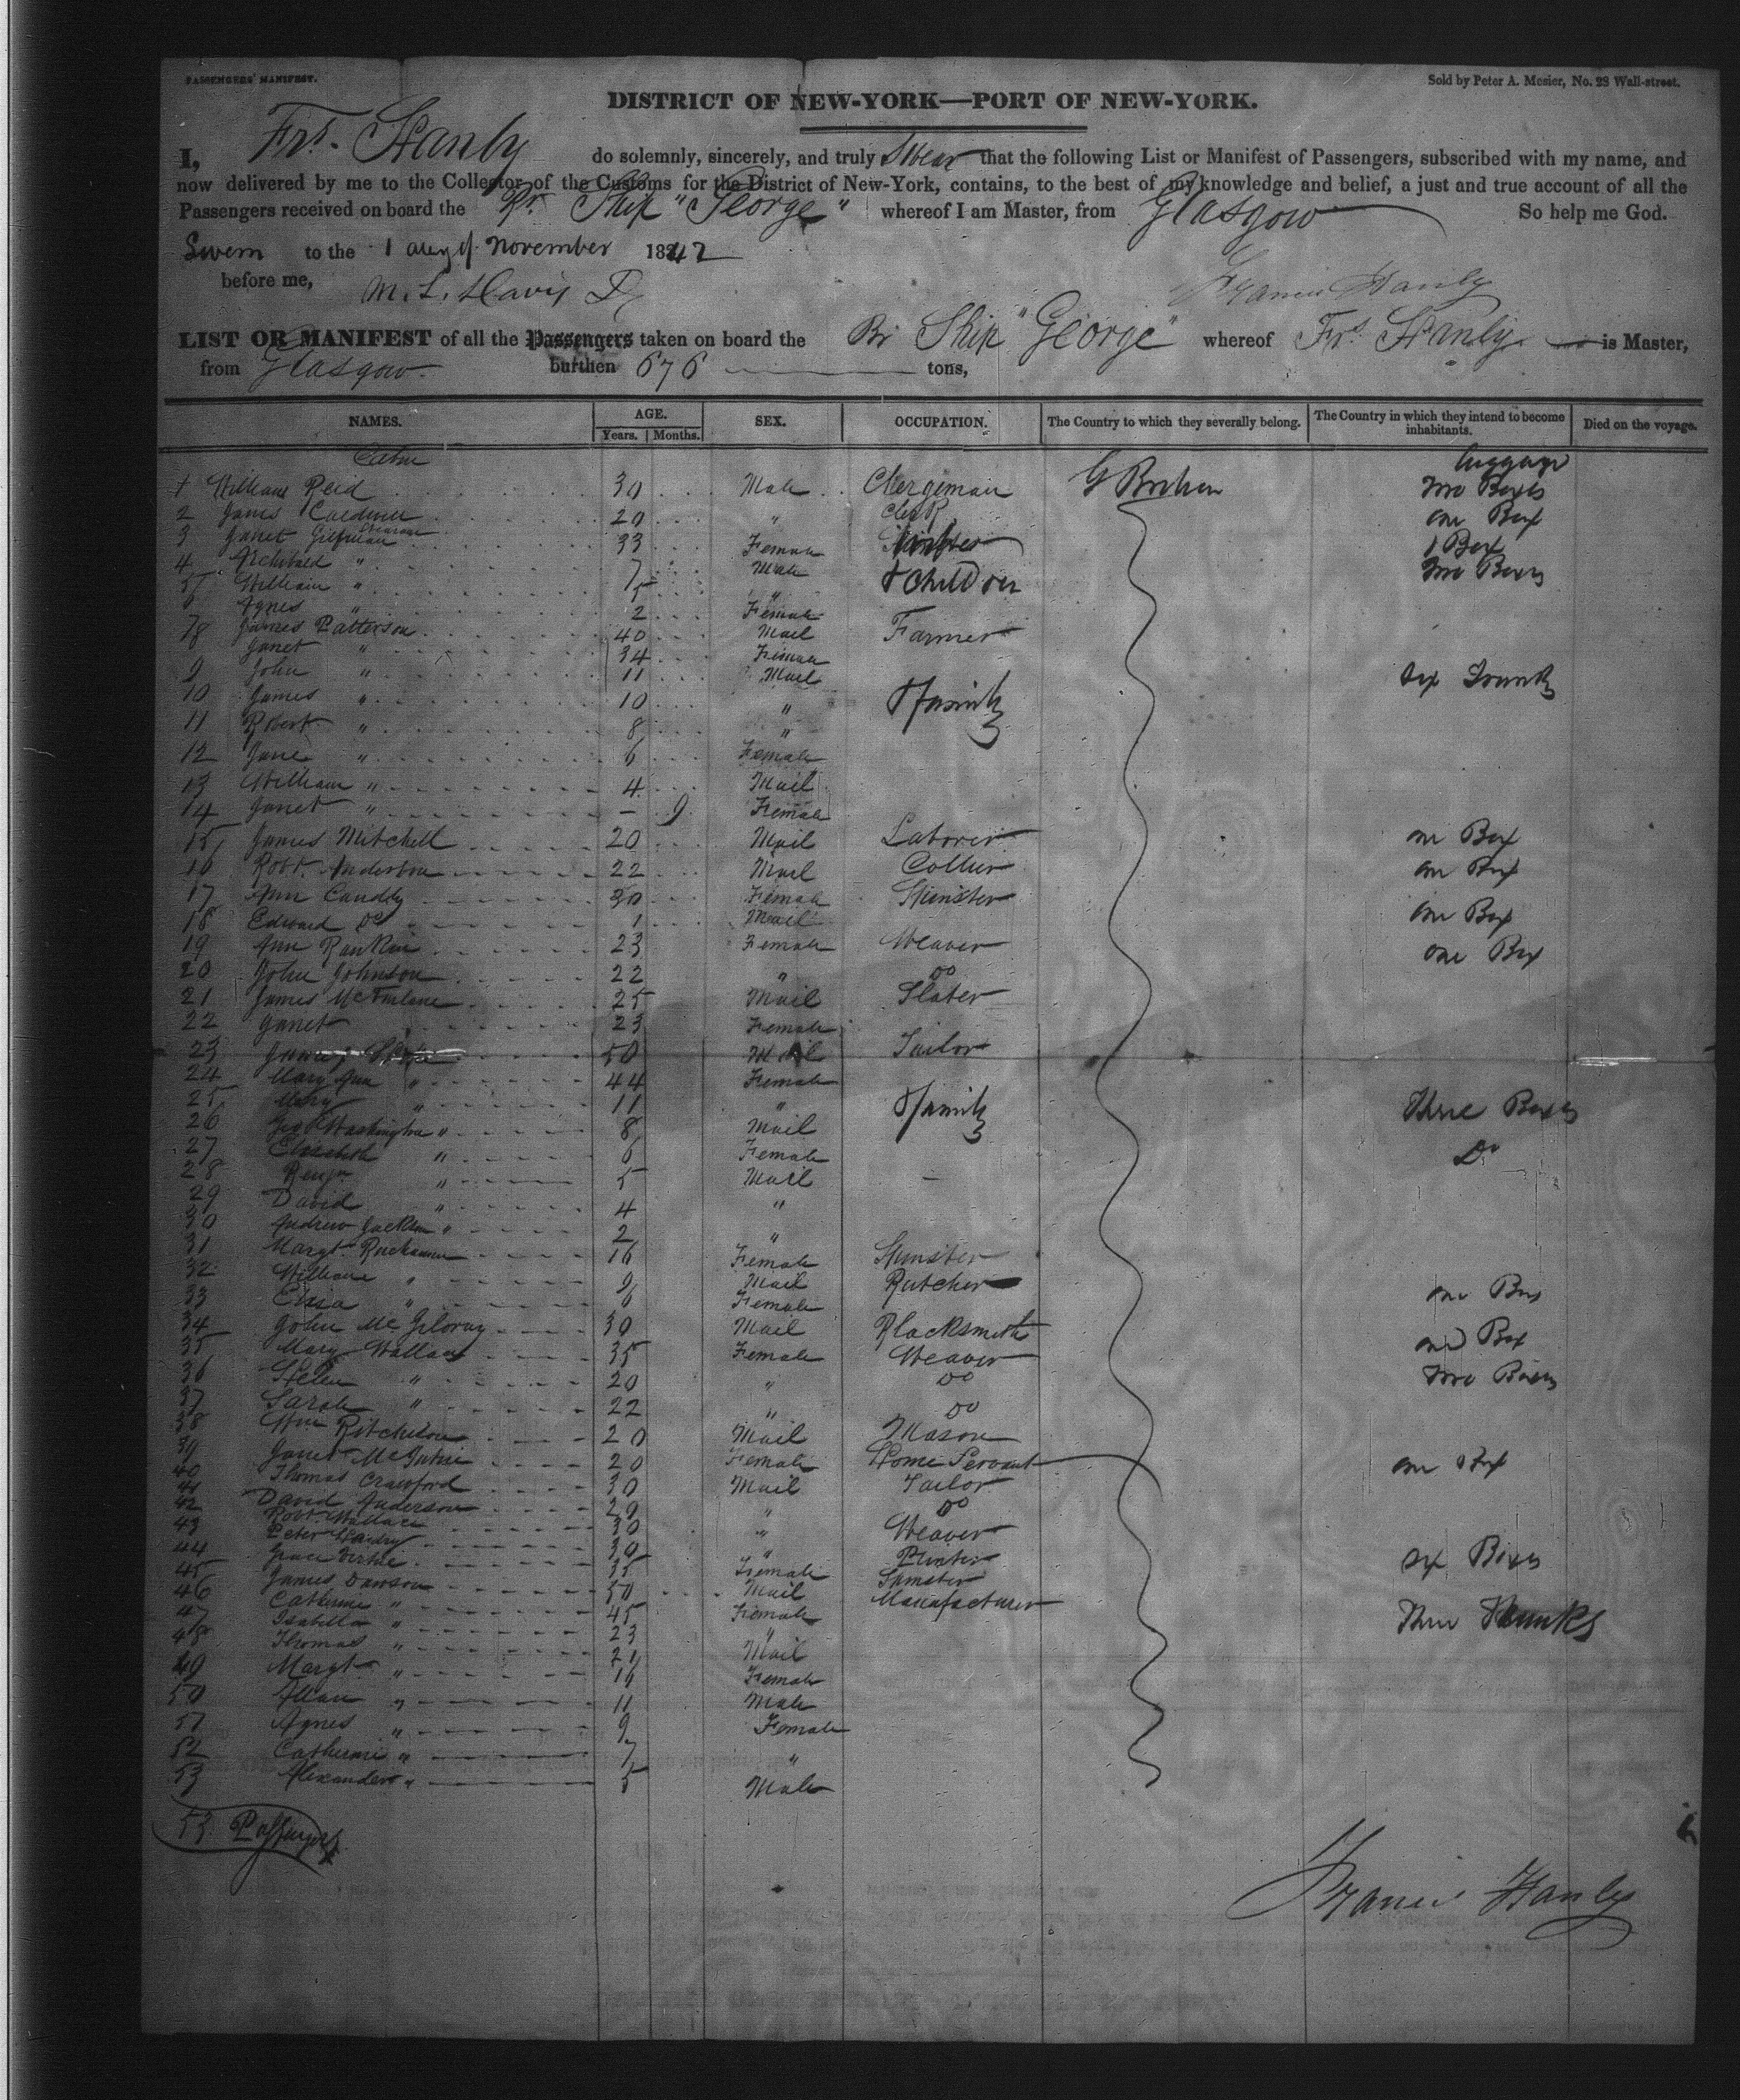 PASSENGERS' MANIFEST.
Sold by Peter A. Mesier, No. 28 Wall-street.
DISTRICT OF NEW-YORK—PORT OF NEW-YORK.
I, Frs. Hanly do solemnly, sincerely, and truly Swear that the following List or Manifest of Passengers, subscribed with my name, and
now delivered by me to the Collector of the Customs for the District of New-York, contains, to the best of my knowledge and belief, a just and true account of all the
Passengers received on board the Br. Ship "George" whereof I am Master, from Glasgow So help me God.
Sworn to the 1 November 1842
before me, M. L. Davis Francis Hanly
LIST OR MANIFEST of all the Passengers taken on board the Br Ship "George" whereof Frs. Hanly is Master,
from Glasgow burthen 676 tons,
NAMES. AGE. SEX. OCCUPATION. The Country to which they severally belong. The Country in which they intend to become inhabitants. Died on the voyage.
Years. Months.
Luggage
1 William Reid 30 Male Clergiman G Britain Two Boxes
2 James 20 " Clerk one Box
3 Janet 33 Female 1 Box
4 Archibald " 7 Male & Children Two Boxes
5 William " 5 "
6 Agnes " 2 Female
7 James Patterson 40 Mail Farmer
8 Janet " 34 Female
9 John " 11 Mail Six Trunks
10 James " 10 " & family
11 Robert " 8 "
12 Jane " 6 Female
13 William " 4 Mail
14 Janet " – 9 Female
15 James Mitchell 20 Mail Laborer one Box
16 Robt. Anderson 22 Mail Collier one Box
17 Ann 30 Female Spinster
18 Edward Do 1 Mail one Box
19 Ann Rankin 23 Female Weaver one Box
20 John Johnson 22 " Do
21 James McFarlane 25 Mail Slater
22 Janet 23 Female
23 50 Mail Tailor
24 Mary Ann " 44 Female
25 Mary " 11 " & family Three Boxes
26 Geo Washington " 8 Mail
27 Elizabeth " 6 Female Do
28 Benjn " 5 Mail –
29 David " 4 "
30 Andrew Jackson " 2 "
31 Margt. Buchanan 16 Female Spinster
32 William " 9 Mail Butcher one Box
33 Eliza " 6 Female
34 John McGilvray 30 Mail Blacksmith one Box
35 Mary Wallace 35 Female Weaver
36 Helen " 20 " Do Two Boxes
37 Sarah " 22 " Do
38 Wm Ritchison 20 Mail Mason
39 Janet McGuthrie 20 Female Home Servant one Box
40 Thomas Crawford 30 Mail Tailor
41 David Anderson 29 " Do
42 Robt. Wallace 30 " Weaver
43 Peter 30 " Printer Six Boxes
44 Grace Virtue 35 Female Spinster
45 James Dawson 50 Mail Manufacturer
46 Catherine " 45 Female Three Trunks
47 Isabella " 23 "
48 Thomas " 21 Mail
49 Margt. " 14 Female
50 Allan " 11 Male
51 Agnes " 9 Female
52 Catherine " 7 "
53 Alexander " 5 Male
53 Passengers
Francis Hanly